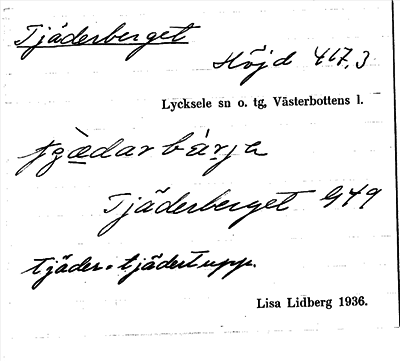 Tjäderberget
Höjd 417,3
Lycksele sn o. tg, Västerbottens l.
bärja
Tjäderberget G49
tjäder = tjädertupp.
Lisa Lidberg 1936.